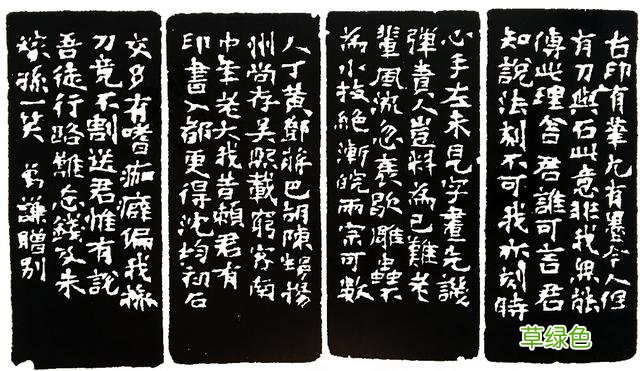 古印有筆尤有墨今人但
有刀與石此意非我無能
傳此理舍君誰可言君
知說法刻不可我亦刻時
心手左未見字畫先譏
彈責人豈料為己難老
輩風流忽衰歇雕蟲
為小技絕浙皖兩宗可數
人丁黃鄧蔣巴胡陳揚
州尚存吳熙載窮客南
中年老大我昔賴君有
印書入都更得沈均初石
交多有嗜痂癖偏我操
刀竟不割送君惟有說
吾徒行路難忘錢及朱
稼孫一笑 㧑謙贈別
草绿色